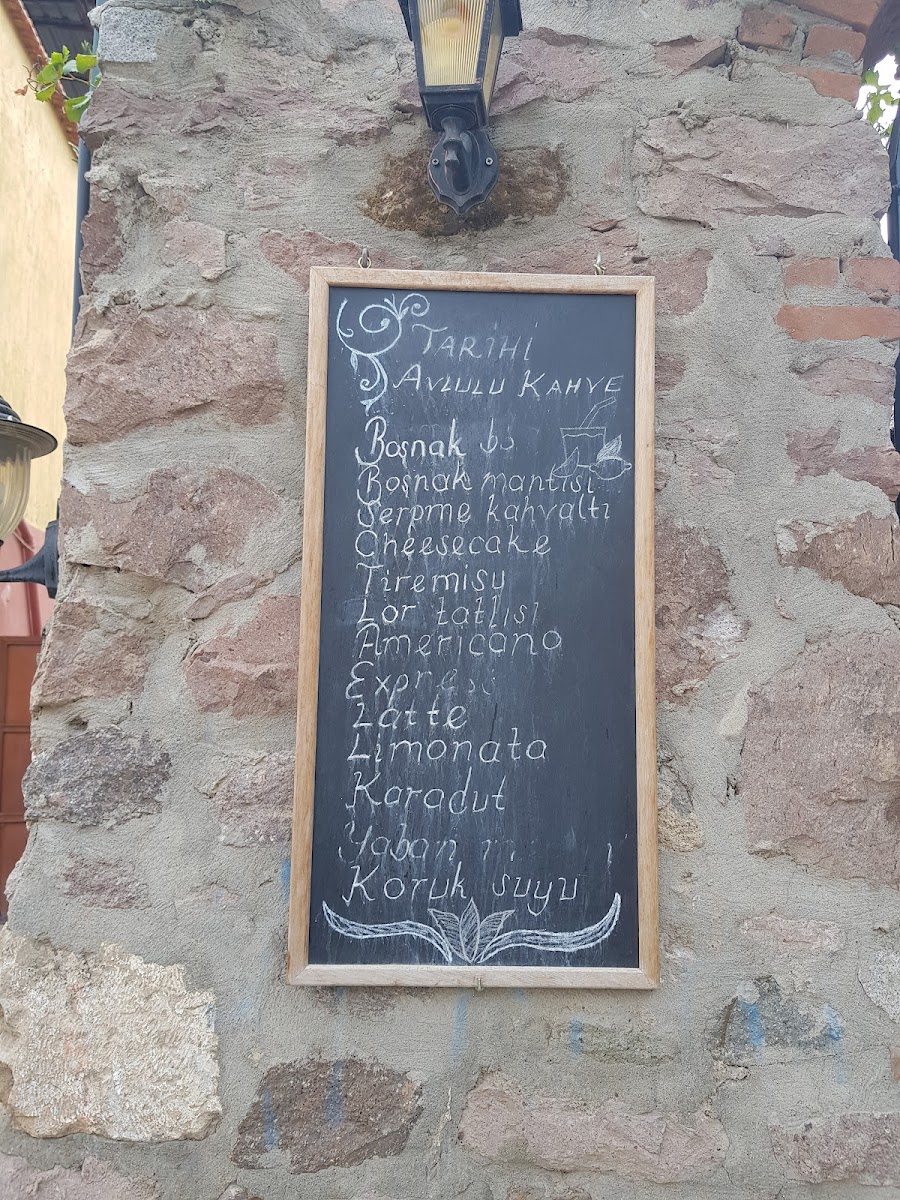 TARİHİ
AVLULU KAHVE
Boşnak
Boşnak mantısı
Serpme kahvaltı
Cheesecake
Tiremisu
Lor tatlısı
Americano
Express
Latte
Limonata
Karadut
Yaban
Koruk suyu